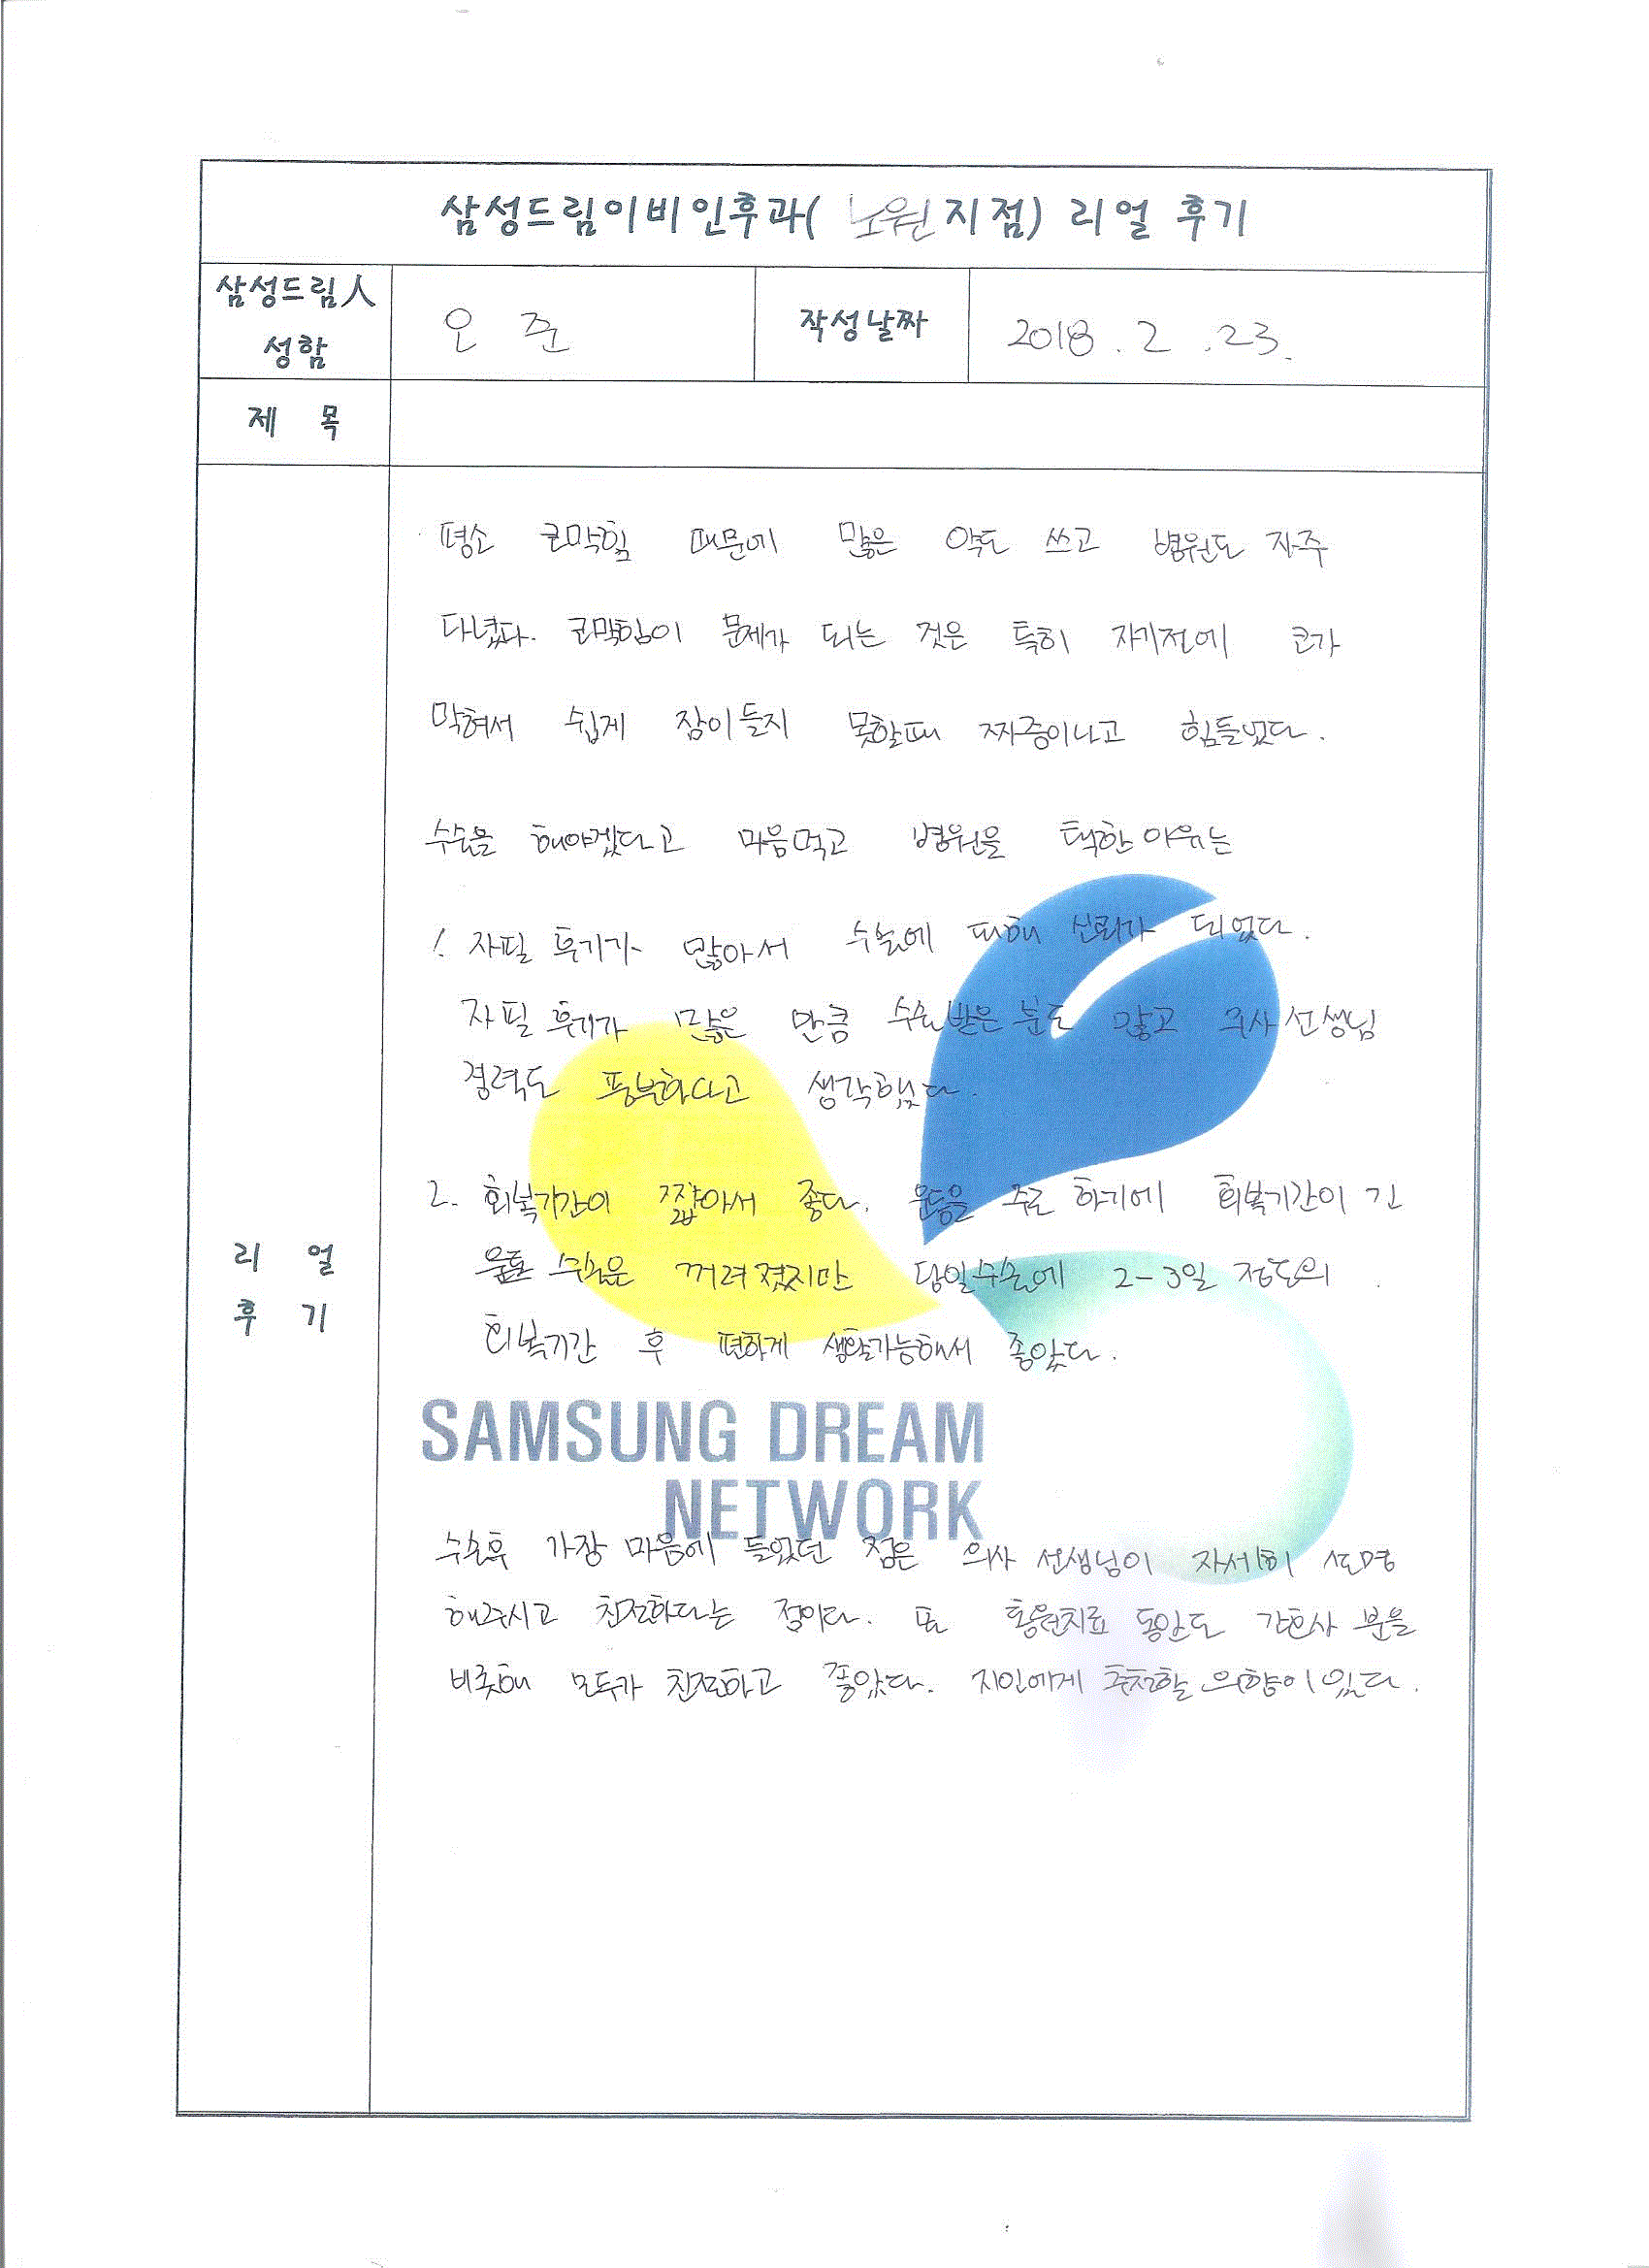 삼성드림이비인후과( 노원 지점) 리얼 후기
삼성드림人
성함
오 준
작성날짜
2018. 2 .23.
제 목
평소 코막힘 때문에 많은 약도 쓰고 병원도 자주
다녔다. 코막힘이 문제가 되는 것은 특히 자기전에 코가
막혀서 쉽게 잠이들지 못할때 짜증이나고 힘들었다.
수술을 해야겠다고 마음먹고 병원을 택한 이유는
1 자필 후기가 많아서 수술에 대해 신뢰가 되었다.
자필 후기가 많은 만큼 수술받은 분도 많고 의사선생님
경력도 풍부하다고 생각했다.
2. 회복기간이 짧아서 좋다. 운동을 주로 하기에 회복기간이 긴
수술은 꺼려졌지만 당일수술에 2-3일 정도의
회복기간 후 편하게 생활가능해서 좋았다.
SAMSUNG DREAM
NETWORK
수술후 가장 마음에 들었던 점은 의사 선생님이 자세히 설명
해주시고 친절하다는 점이다. 또 통원치료 동안도 간호사 분을
비롯해 모두가 친절하고 좋았다. 지인에게 추천할 의향이 있다.
리 얼
후 기